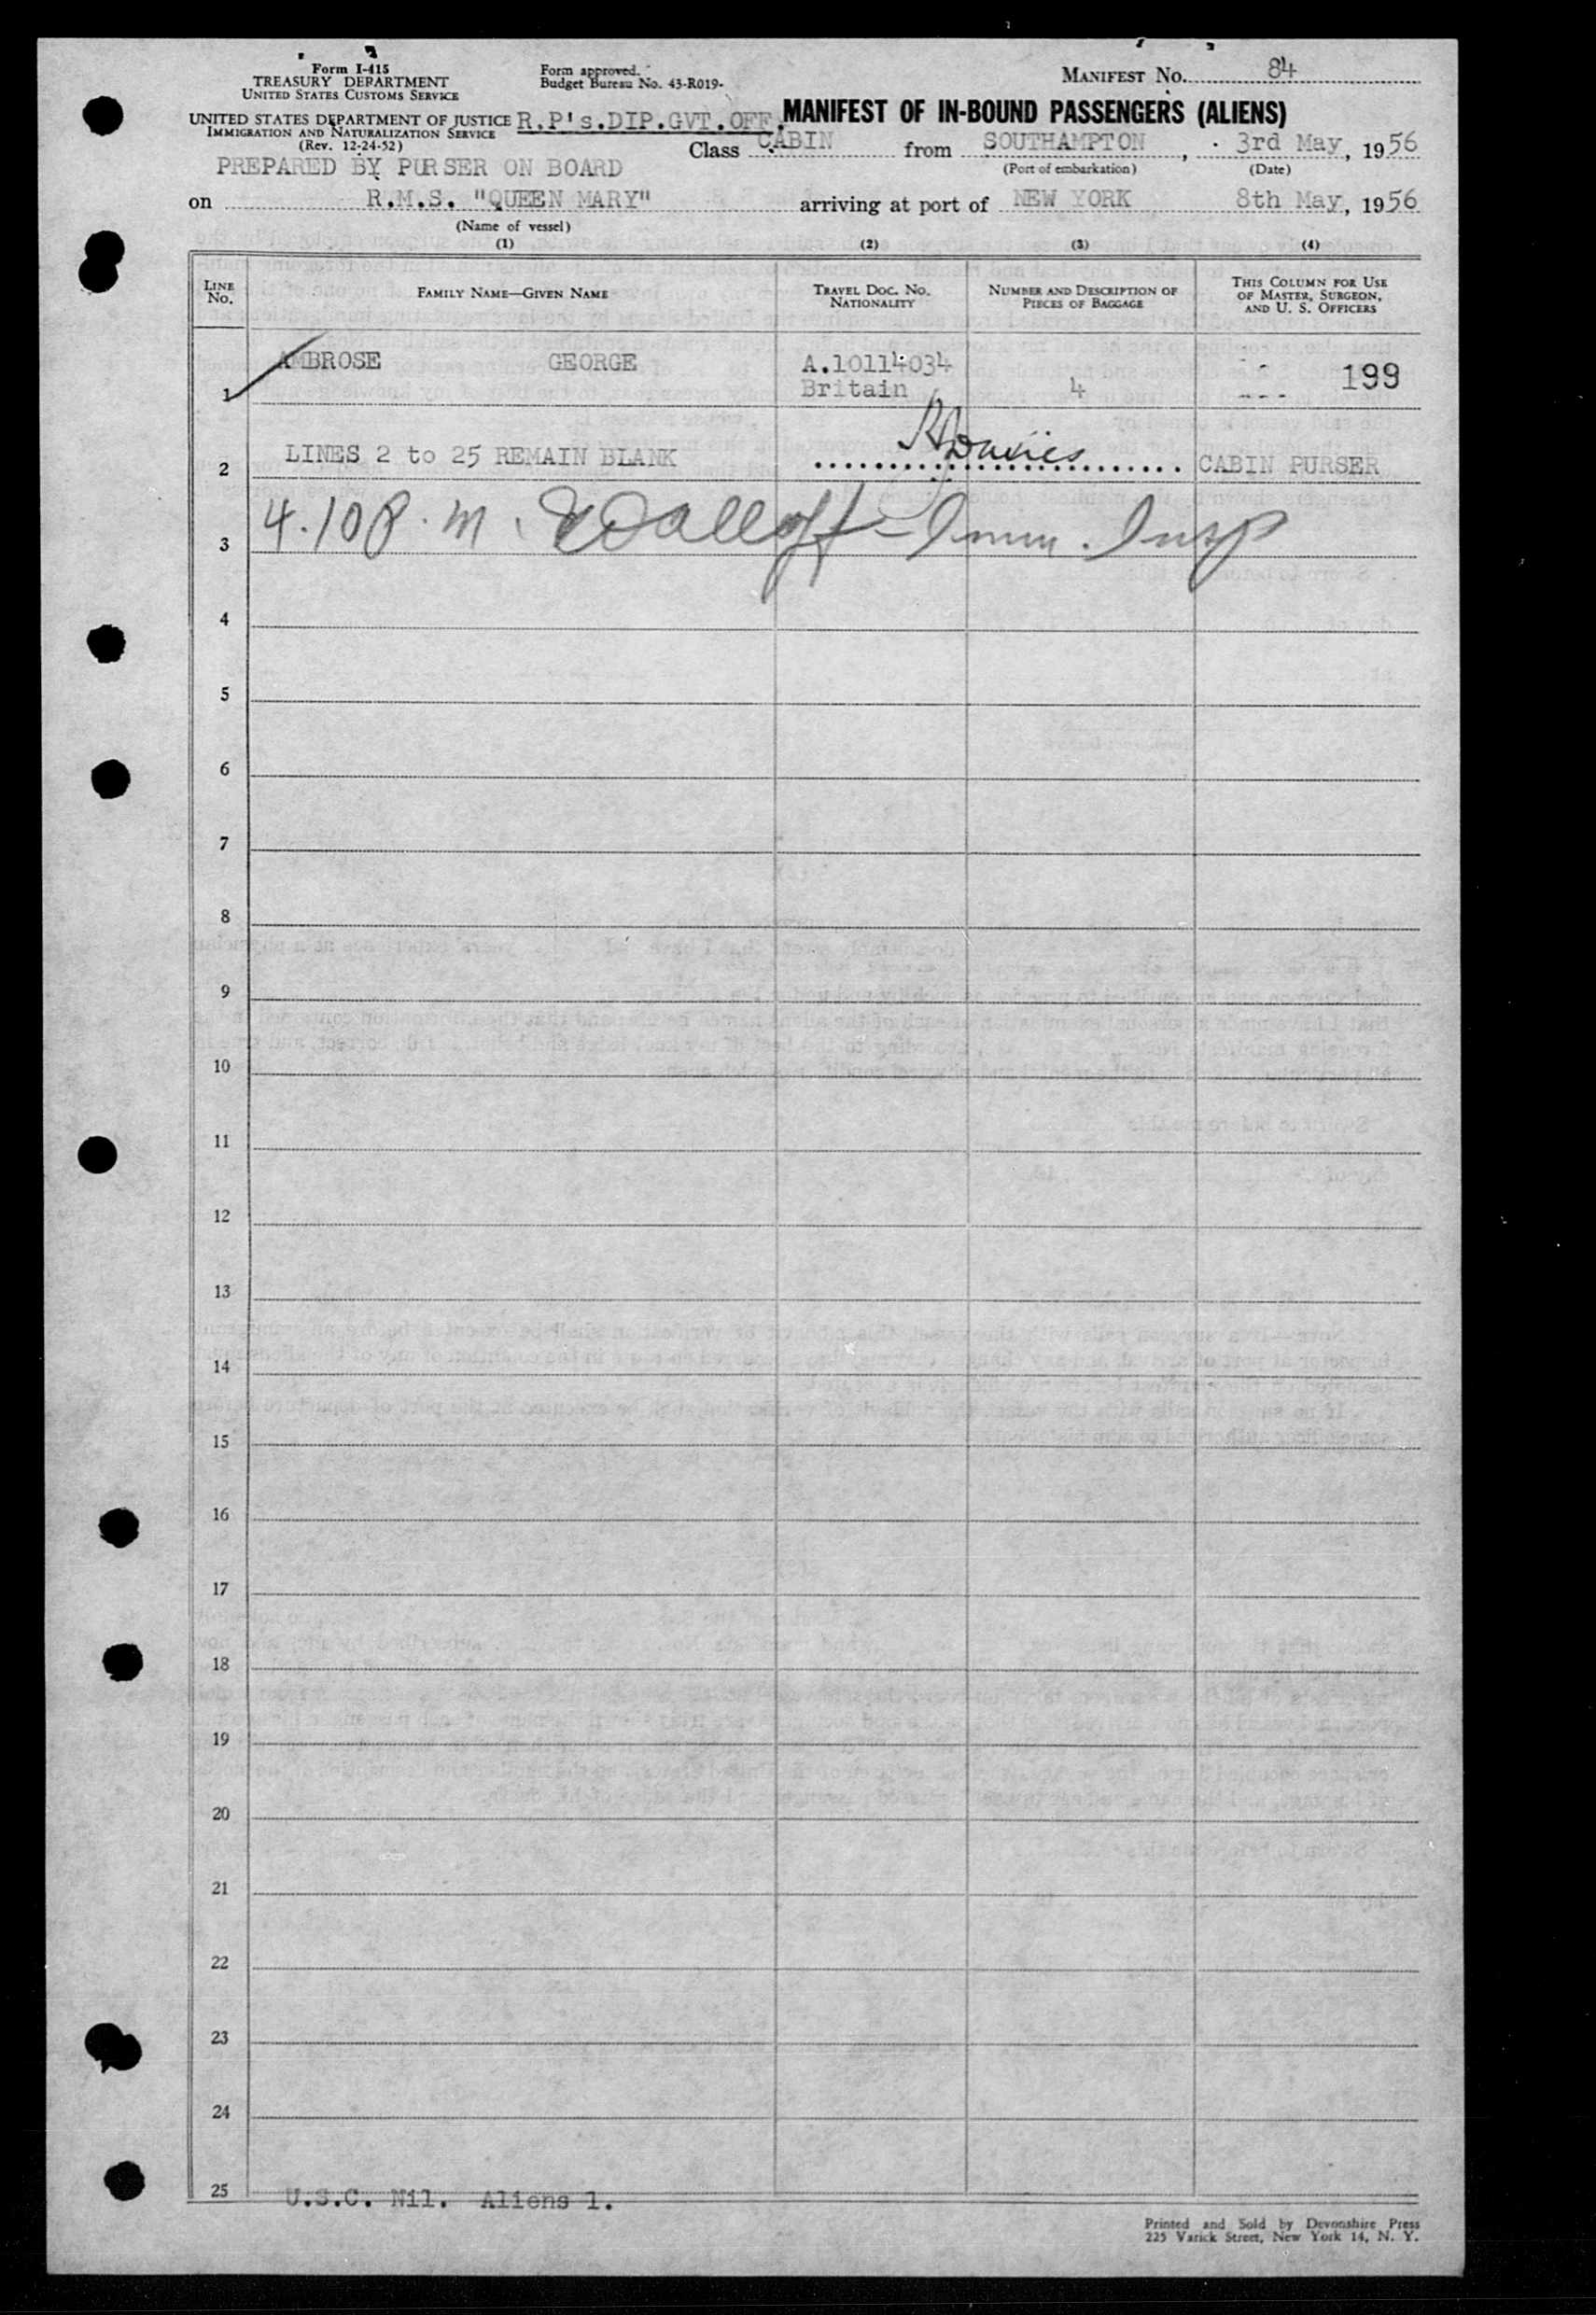 Form I-415
TREASURY DEPARTMENT
UNITED STATES CUSTOMS SERVICE
UNITED STATES DEPARTMENT OF JUSTICE
IMMIGRATION AND NATURALIZATION SERVICE
(Rev. 12-24-52)
Form approved.
Budget Bureau No. 43-R019-
MANIFEST NO. 84
R.P's.DIP.GVT.OFF. MANIFEST OF IN-BOUND PASSENGERS (ALIENS)
PREPARED BY PURSER ON BOARD
Class CABIN from SOUTHAMPTON, 3rd May, 1956
(Port of embarkation) (Date)
on R.M.S. "QUEEN MARY" arriving at port of NEW YORK 8th May, 1956
(Name of vessel)
(1) (2) (3) (4)
LINE NO.
FAMILY NAME—GIVEN NAME
TRAVEL DOC. NO. NATIONALITY
NUMBER AND DESCRIPTION OF PIECES OF BAGGAGE
THIS COLUMN FOR USE OF MASTER, SURGEON, AND U. S. OFFICERS
AMBROSE GEORGE A.10114034 - -
1 Britain 4 - - - 199
2 LINES 2 to 25 REMAIN BLANK Davies CABIN PURSER
3 4.10 P.M. - Imm. Insp
4
5
6
7
8
9
10
11
12
13
14
15
16
17
18
19
20
21
22
23
24
25 U.S.C. Nil. Aliens 1.
Printed and Sold by Devonshire Press
225 Varick Street, New York 14, N. Y.